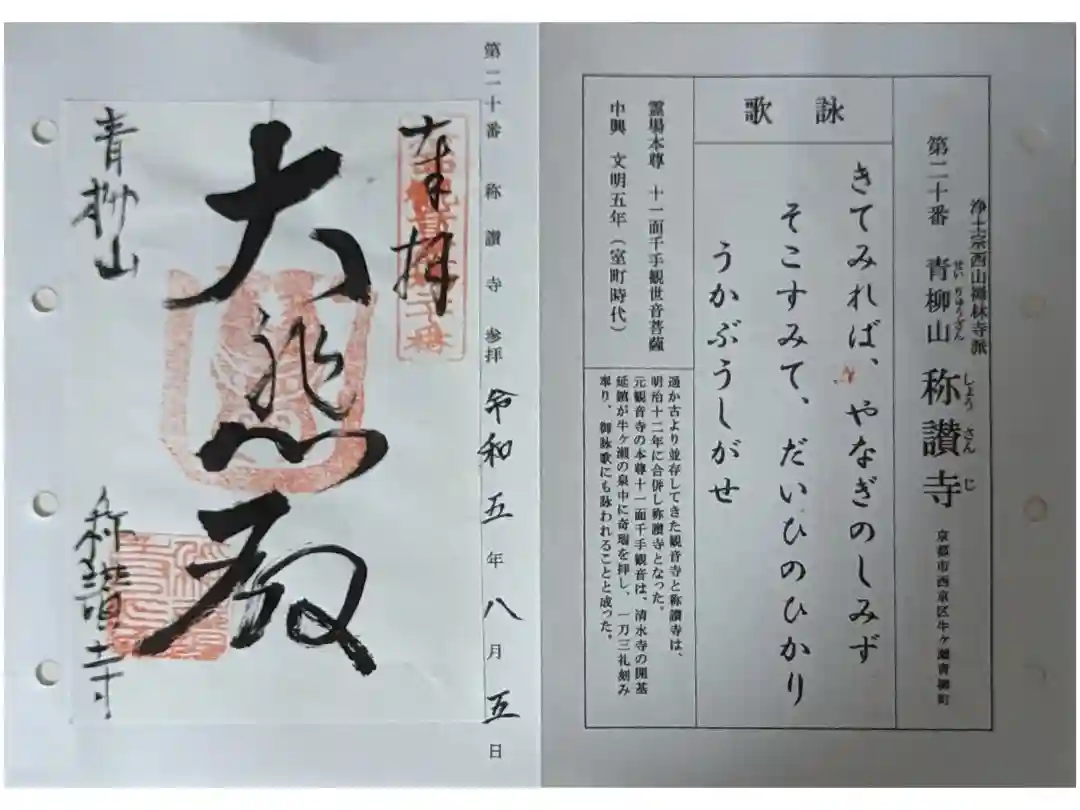 浄土宗西山禅林寺派
第二十番 青柳山 称讃寺
せいりゅうざん しょうさんじ
京都市西京区牛ヶ瀬青柳町
詠歌
きてみれば、やなぎのしみず
そこすみて、だいひのひかり
うかぶうしがせ
霊場本尊 十一面千手観世音菩薩
中興 文明五年（室町時代）
遥か古より並存してきた観音寺と称讃寺は、
明治十二年に合併し称讃寺となった。
元観音寺の本尊十一面千手観音は、清水寺の開基
延鎮が牛ヶ瀬の泉中に奇瑞を拝し、一刀三礼刻み
奉り、御詠歌にも詠われることと成った。
第二十番 称讃寺 参拝 令和五年八月五日
奉拝
大悲殿
青柳山
称讃寺